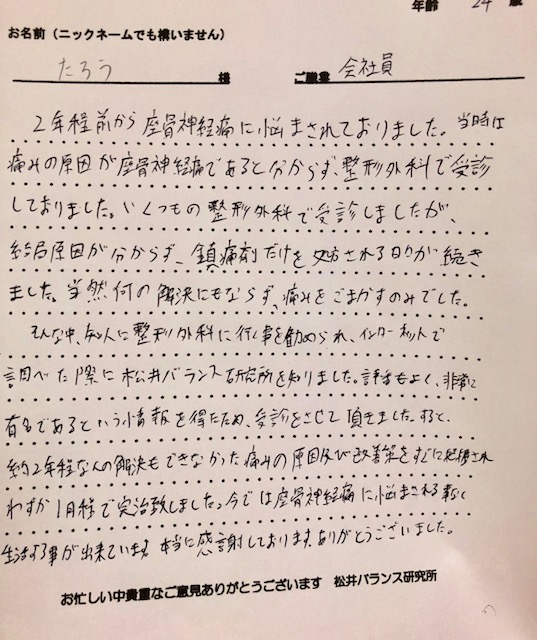 年齢 24 歳
お名前（ニックネームでも構いません）
たろう 様 ご職業 会社員
2年程前から座骨神経痛に悩まされておりました。当時は
痛みの原因が座骨神経痛であると分からず、整形外科で受診
しておりました。いくつもの整形外科で受診しましたが、
結局原因が分からず、鎮痛剤だけを処方される日々が続き
ました。当然何の解決にもならず、痛みをごまかすのみでした。
そんな中、知人に整形外科に行く事を勧められ、インターネットで
調べた際に松井バランス研究所を知りました。評判もよく、非常に
有名であるという情報を得たため、受診をさせて頂きました。すると、
約2年程なんの解決もできなかった痛みの原因及び改善策をすぐに把握され
わずか1月程で完治致しました。今では座骨神経痛に悩まされる事なく
生活する事が出来ています。本当に感謝しております。ありがとうございました。
お忙しい中貴重なご意見ありがとうございます 松井バランス研究所